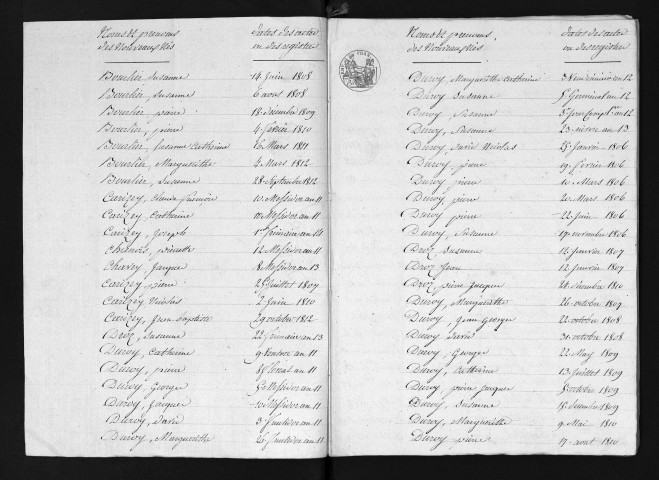 Noms et prénoms
des Nouveaux Nés
Dates des actes
ou des registres
Bourlier, Susanne 14 Juin 1808
Bourlier, Susanne 6 aout 1808
Bourlier, pierre 18 Décembre 1809
Bourlier, pierre 4 février 1810
Bourlier, Susanne Catherine 6 Mars 1811
Bourlier, Marguerithe 4 Mars 1812
Bourlier, Susanne 28 Septembre 1812
Carizey, 10 Messidor an 11
Carizey, Catherine 10 Messidor an 11
Carizey, Joseph 1er frimaire an 14
pierrette 12 Messidor an 11
Charey, Jacques 8 Messidor an 13
Carizey, pierre 25 Juillet 1807
Carizey Nicolas 2 Juin 1810
Carizey, Jean baptiste 29 octobre 1812
Droz, Susanne 22 frimaire an 13
Duroy, Catherine 9 Ventose an 11
Duroy, pierre floreal an 11
Duroy Georges Messidor an 11
Duroy, Jacques 10 Messidor an 11
Duroy, David 3 fructidor an 11
Duroy, Marguerithe 26 fructidor an 11
Noms et prénoms
des Nouveaux Nés
Dates des actes
ou des registres
Duroy, Marguerithe Catherine 3 Vendémiaire an 12
Duroy Susanne Germinal an 12
Duroy, Susanne Jour Complre an 12
Duroy, Susanne 23 nivose an 13
Duroy, David Nicolas 25 Janvier 1806
Duroy, pierre 19 fevrier 1806
Duroy pierre 10 Mars 1806
Duroy, pierre 20 Mars 1806
Duroy pierre 22 Juin 1806
Duroy, Susanne 19 novembre 1806
Droz Susanne 12 Janvier 1807
Droz Jean 12 Janvier 1807
Droz pierre Jacques 24 Décembre 1810
Duroy, Marguerithe 26 octobre 1807
Duroy, Jean George 22 octobre 1808
Duroy David 31 octobre 1808
Duroy, Georges 22 May 1809
Duroy, Catherine 13 Juillet 1809
Duroy pierre Jacques 8 octobre 1809
Duroy, Susanne 18 Décembre 1809
Duroy, Marguerithe 9 Mai 1810
Duroy pierre 17 aout 1810